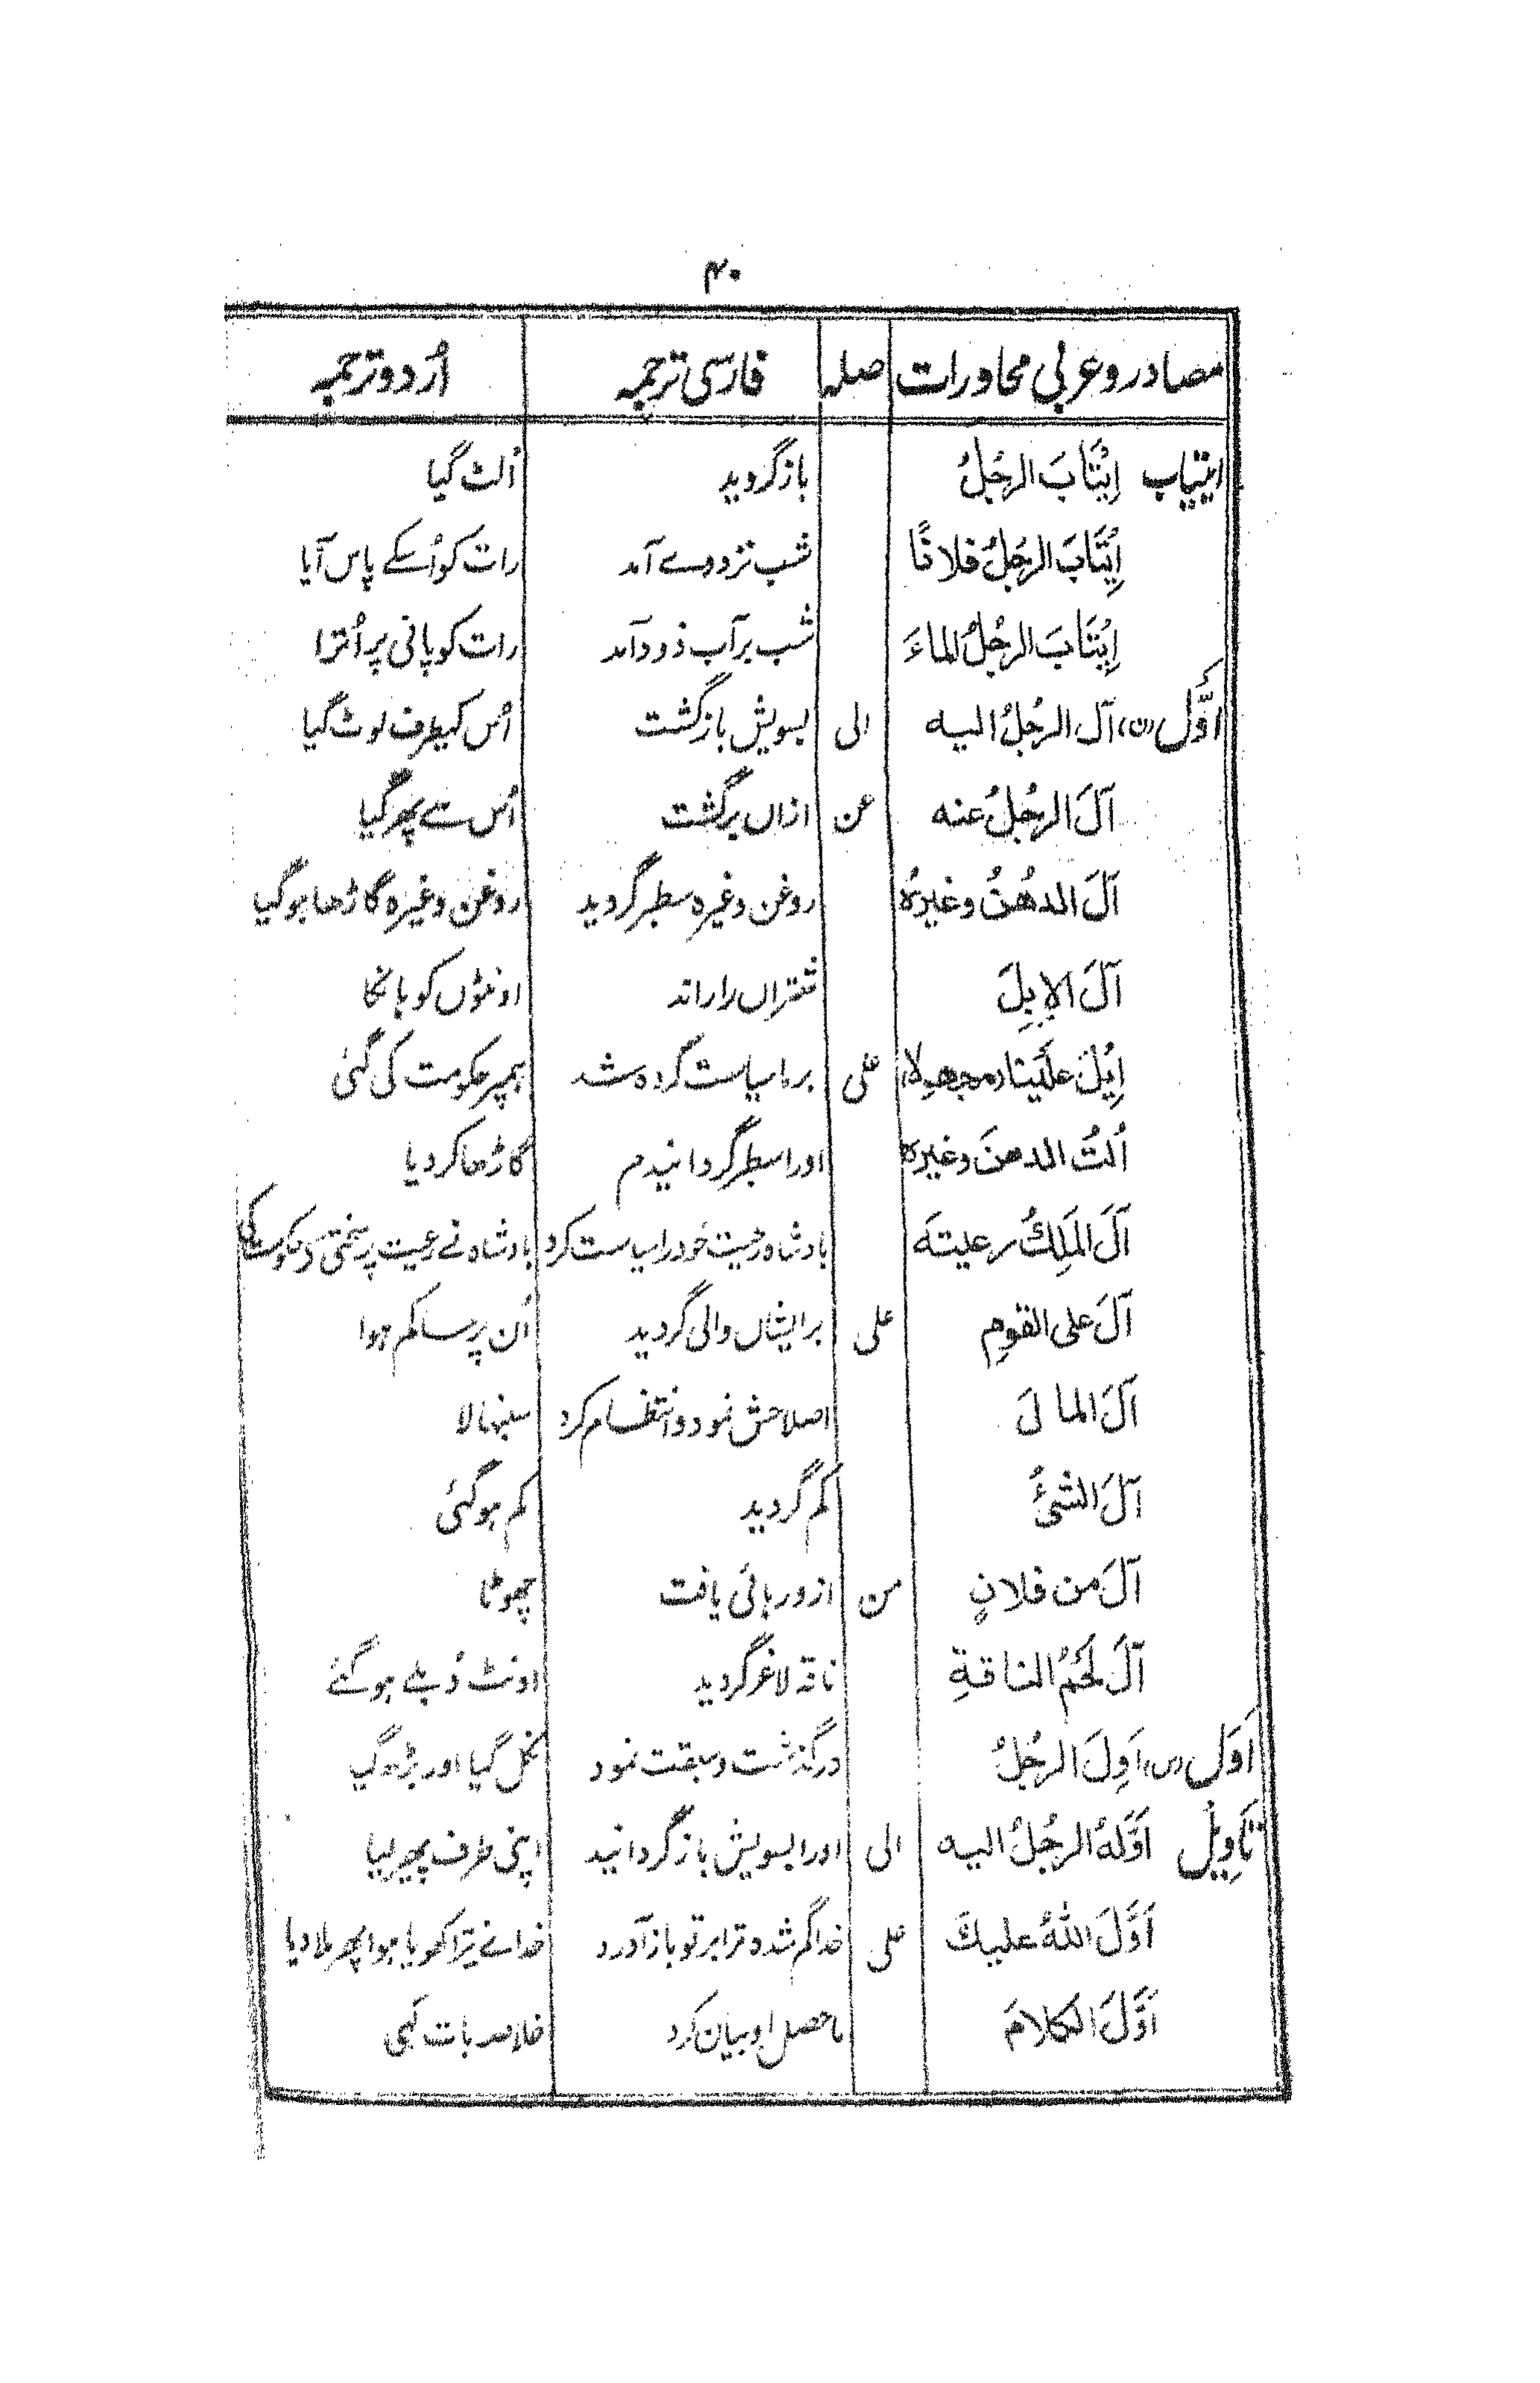 ۴۰
مصادر و عربی محاورات صلہ فارسی ترجمہ اُردو ترجمہ
ایتیاب اِیْتَابَ الرجُلُ بازگردید اُلٹ گیا
اِیْتَابَ الرجُلُ فلانًا شب نزد وے آمد رات کو اُسکے پاس آیا
اِیْتَابَ الرجُلُ الماءَ شب برآب فرود آمد رات کو پانی پر اُترا
اَوْل (ن) آل الرجُلُ الیه الی بسویش بازگشت اُس کیطرف لوٹ گیا
آلَ الرجُلُ عنه عن ازاں برگشت اُس سے پھر گیا
آلَ الدھُنُ وغیرہُ روغن وغیرہ سطبر گردید روغن وغیرہ گاڑھا ہوگیا
آلَ الاِبِلَ شتراں را راند اونٹوں کو ہانکا
اِیْلَ عَلَیْنا (مجھولا) علی برما سیاست کردہ شد ہمپر حکومت کی گئی
اُلتُ الدھنَ وغیرہ اورا سطبر گردانیدم گاڑھا کردیا
آلَ المَلِكُ رعیتَه بادشاہ رعیت خود را سیاست کرد بادشاہ نے رعیت پر سختی و حکومت کی
آلَ علی القومِ علی برایشاں والی گردید اُن پر حاکم ہوا
آلَ المالَ اصلاحش نمود و انتظام کرد سنبھالا
آلَ الشئُ کم گردید کم ہوگئی
آلَ من فلانٍ من ازو رہائی یافت چھوٹا
آلَ لَحْمُ الناقةِ ناقہ لاغر گردید اونٹ دُبلے ہوگئے
اَوَل (س) اَوِلَ الرجُلُ درگذشت و سبقت نمود نکل گیا اور بڑھ گیا
تَأوِیْل اَوَّلَهُ الرجُلُ الیه الی اورا بسویش بازگردانید اپنی طرف پھیر لیا
اَوَّلَ اللهُ علیكَ علی خدا گم شدہ ترا بر تو باز آورد خدا نے تیرا کھویا ہوا پھر ملا دیا
اَوَّلَ الکلامَ ماحصل او بیان کرد خلاصہ بات کہی